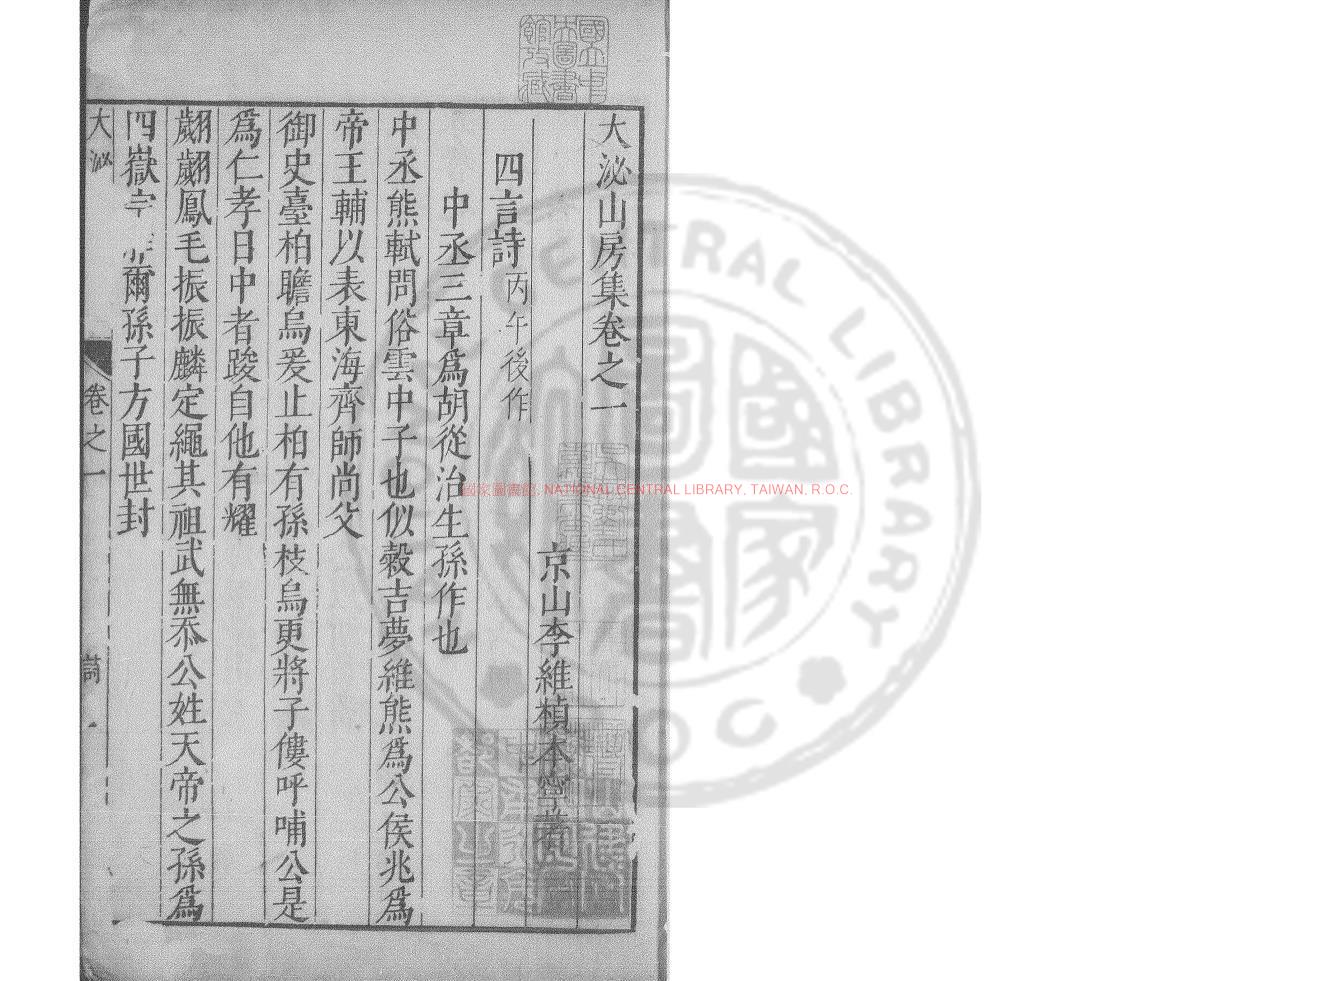 大泌山房集卷之一
京山李維楨本寧著
四言詩丙午後作
中丞三章爲胡從治生孫作也
中丞熊軾問俗雲中子也似穀吉夢維熊爲公侯兆爲
帝王輔以表東海齊師尚父
御史臺柏瞻烏爰止柏有孫枝烏更將子僂呼哺公是
爲仁孝日中者踆自他有耀
翽翽鳳毛振振麟定繩其祖武無忝公姓天帝之孫爲
四嶽宰 爾孫子方國世封
大泌
卷之一
詩
一
國立中央圖書館收藏
國家圖書館, NATIONAL CENTRAL LIBRARY, TAIWAN, R.O.C.
CENTRAL LIBRARY
ROC
國家圖書